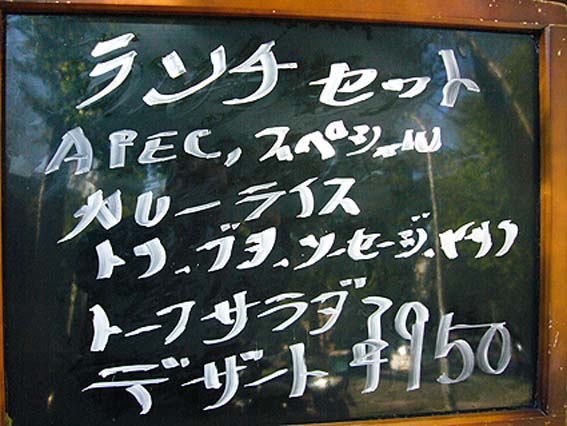 ランチセット
APEC,スペシャル
カレーライス
トリ、ブタ、ソーセージ、ヤサイ
トーフサラダ
デザート ¥950